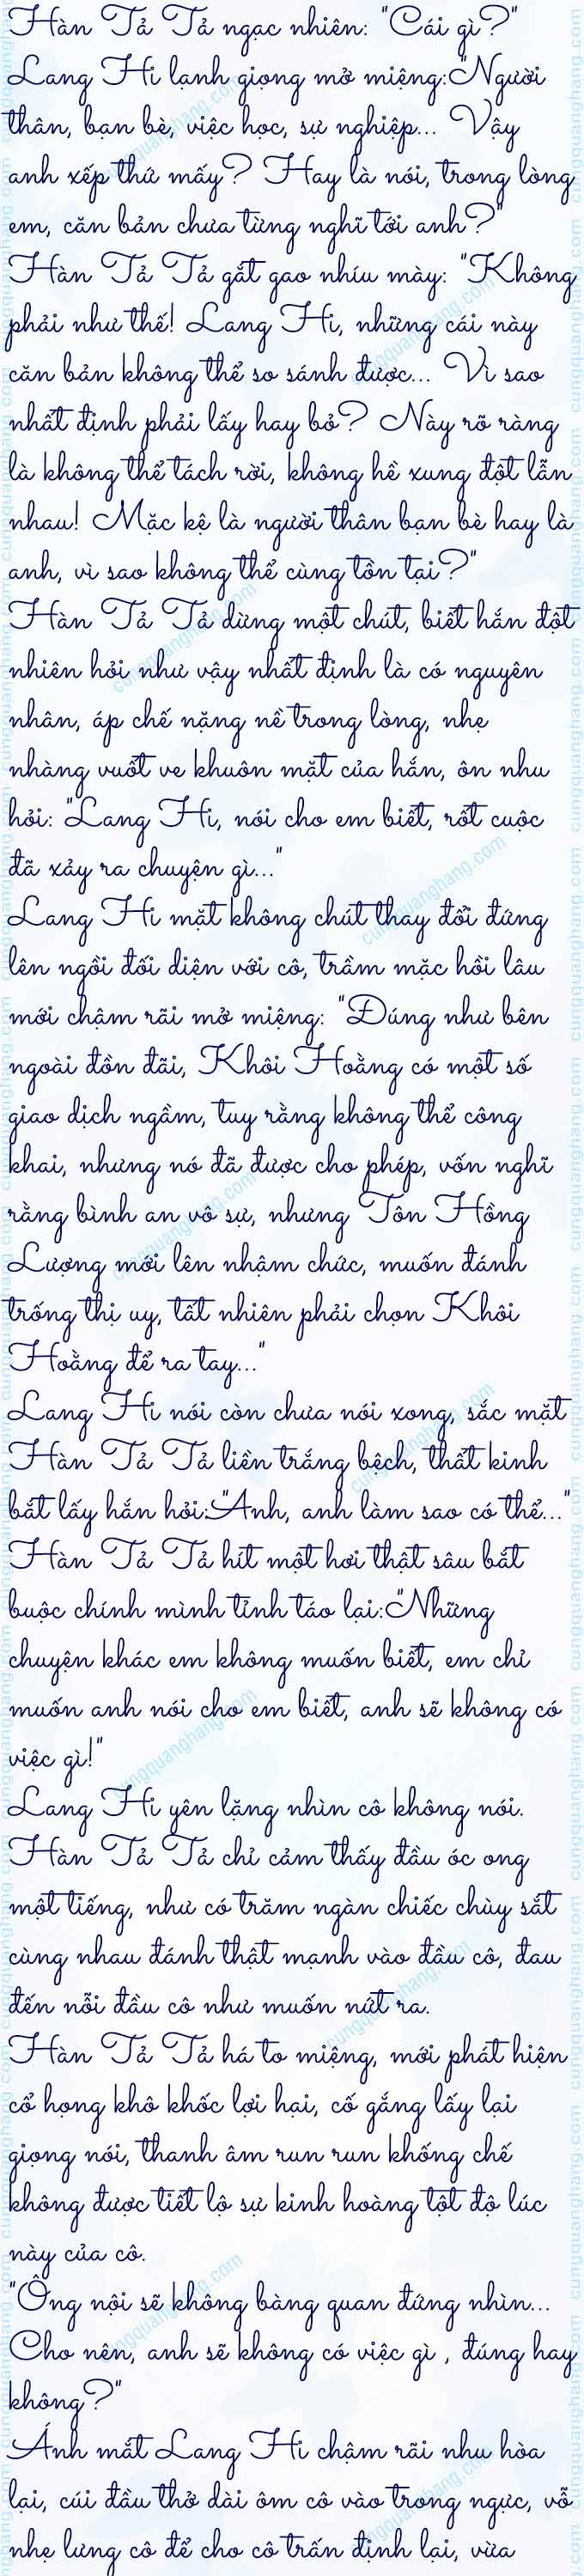 Hàn Tả Tả ngạc nhiên: "Cái gì?"
Lang Hi lạnh giọng mở miệng:"Người
thân, bạn bè, việc học, sự nghiệp... Vậy
anh xếp thứ mấy? Hay là nói, trong lòng
em, căn bản chưa từng nghĩ tới anh?"
Hàn Tả Tả gắt gao nhíu mày: "Không
phải như thế! Lang Hi, những cái này
căn bản không thể so sánh được... Vì sao
nhất định phải lấy hay bỏ? Này rõ ràng
là không thể tách rời, không hề xung đột lẫn
nhau! Mặc kệ là người thân bạn bè hay là
anh, vì sao không thể cùng tồn tại?"
Hàn Tả Tả dừng một chút, biết hắn đột
nhiên hỏi như vậy nhất định là có nguyên
nhân, áp chế nặng nề trong lòng, nhẹ
nhàng vuốt ve khuôn mặt của hắn, ôn nhu
hỏi: "Lang Hi, nói cho em biết, rốt cuộc
đã xảy ra chuyện gì..."
Lang Hi mặt không chút thay đổi đứng
lên ngồi đối diện với cô, trầm mặc hồi lâu
mới chậm rãi mở miệng: "Đúng như bên
ngoài đồn đãi, Khôi Hoằng có một số
giao dịch ngầm, tuy rằng không thể công
khai, nhưng nó đã được cho phép, vốn nghĩ
rằng bình an vô sự, nhưng Tôn Hồng
Lượng mới lên nhậm chức, muốn đánh
trống thị uy, tất nhiên phải chọn Khôi
Hoằng để ra tay..."
Lang Hi nói còn chưa nói xong, sắc mặt
Hàn Tả Tả liền trắng bệch, thất kinh
bắt lấy hắn hỏi:"Anh, anh làm sao có thể..."
Hàn Tả Tả hít một hơi thật sâu bắt
buộc chính mình tỉnh táo lại:"Những
chuyện khác em không muốn biết, em chỉ
muốn anh nói cho em biết, anh sẽ không có
việc gì!"
Lang Hi yên lặng nhìn cô không nói.
Hàn Tả Tả chỉ cảm thấy đầu óc ong
một tiếng, như có trăm ngàn chiếc chùy sắt
cùng nhau đánh thật mạnh vào đầu cô, đau
đến nỗi đầu cô như muốn nứt ra.
Hàn Tả Tả há to miệng, mới phát hiện
cổ họng khô khốc lợi hại, cố gắng lấy lại
giọng nói, thanh âm run run khống chế
không được tiết lộ sự kinh hoàng tột độ lúc
này của cô.
"Ông nội sẽ không bàng quan đứng nhìn...
Cho nên, anh sẽ không có việc gì , đúng hay
không?"
Ánh mắt Lang Hi chậm rãi nhu hòa
lại, cúi đầu thở dài ôm cô vào trong ngực, vỗ
nhẹ lưng cô để cho cô trấn định lại, vừa
cungquanghang.com